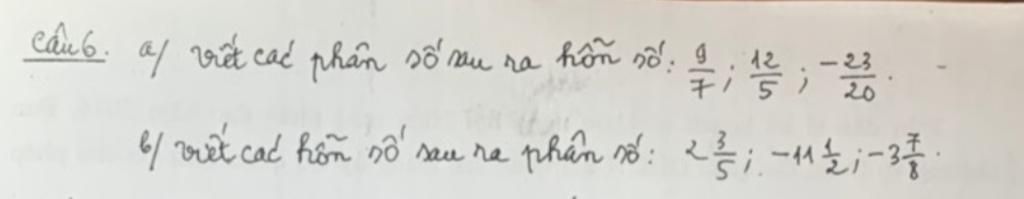 Câu 6. a/ viết các phân số sau ra hỗn số: 9/7; 12/5; -23/20.
b/ viết các hỗn số sau ra phân số: 2 3/5; -11 1/2; -3 7/8.